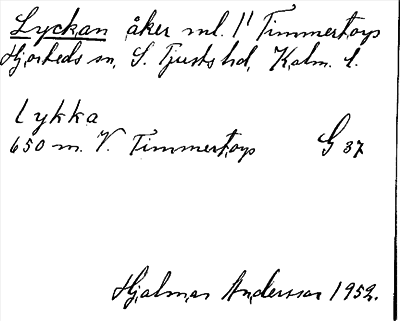 Lyckan åker ml. 1' Timmertorp
Hjorteds sn, S. Tjusts hd, Kalm. l.
lykka
650 m. V. Timmertorp G 37
Hjalmar Andersson 1952.